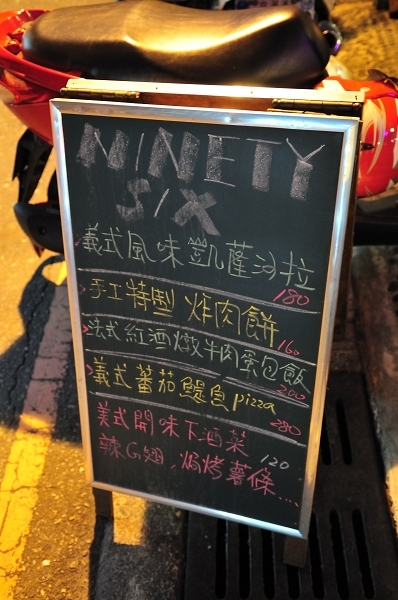 NINETY
SIX
義式風味凱薩沙拉
180
手工特製 炸肉餅
160
法式紅酒燉牛肉蛋包飯
200
義式蕃茄鯷魚pizza
280
美式開味下酒菜
120
辣G翅,焗烤薯條....